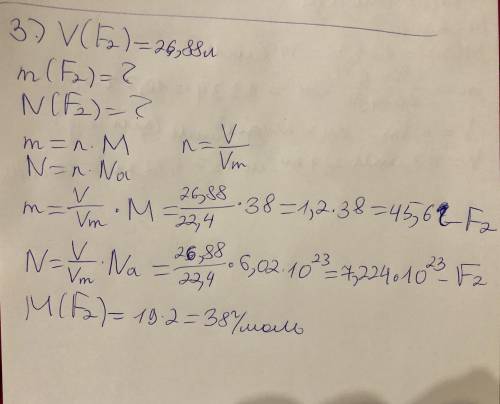 3.) V(F₂) = 26,88л
m(F₂) = ?
N(F₂) = ?
m = n · M n = V/Vm
N = n · Na
m = V/Vm · M = 26,88/22,4 · 38 = 1,2 · 38 = 45,6г – F₂
N = V/Vm · Na = 26,88/22,4 · 6,02 · 10²³ = 7,224 · 10²³ – F₂
M(F₂) = 19 · 2 = 38г/моль